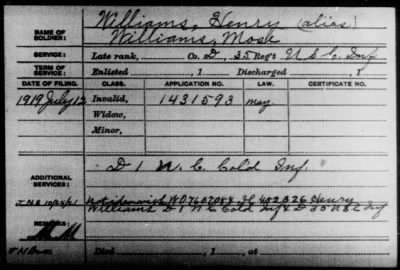 Williams, Henry (alias)
NAME OF SOLDIER: Williams, Mose
SERVICE: Late rank, Co. D, 35 Reg't U S C Inf
TERM OF SERVICE: Enlisted , 1 Discharged , 1
DATE OF FILING. CLASS. APPLICATION NO. LAW. CERTIFICATE NO.
1919 July 12 Invalid, 1431593 May
Widow,
Minor,
D 1 N. C. Cold Inf.
ADDITIONAL SERVICES:
WO 7607088 402326 Henry
Williams D 1 N C Cold Inf & D 35 U S C Inf
REMARKS:
Died , 1 , at